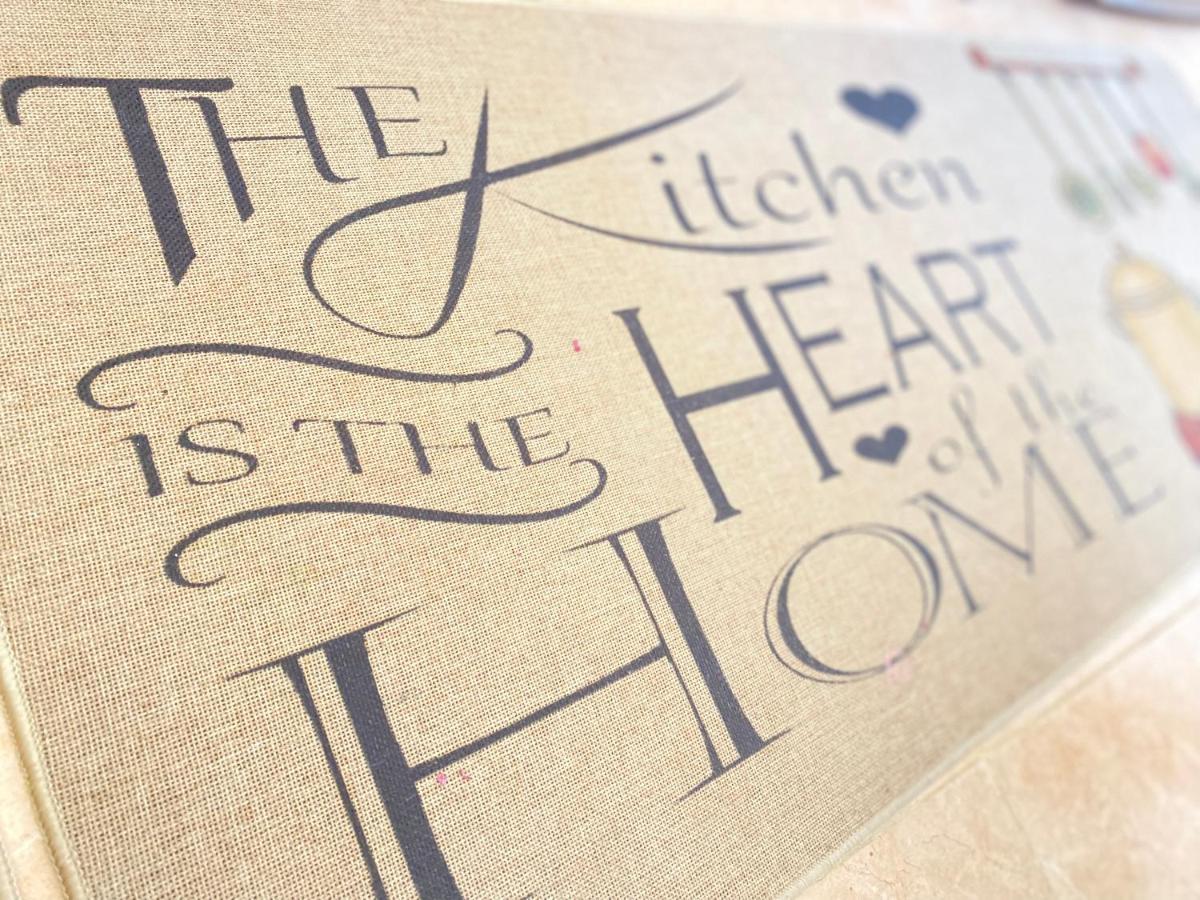 THE Kitchen
IS THE HEART
of the
HOME